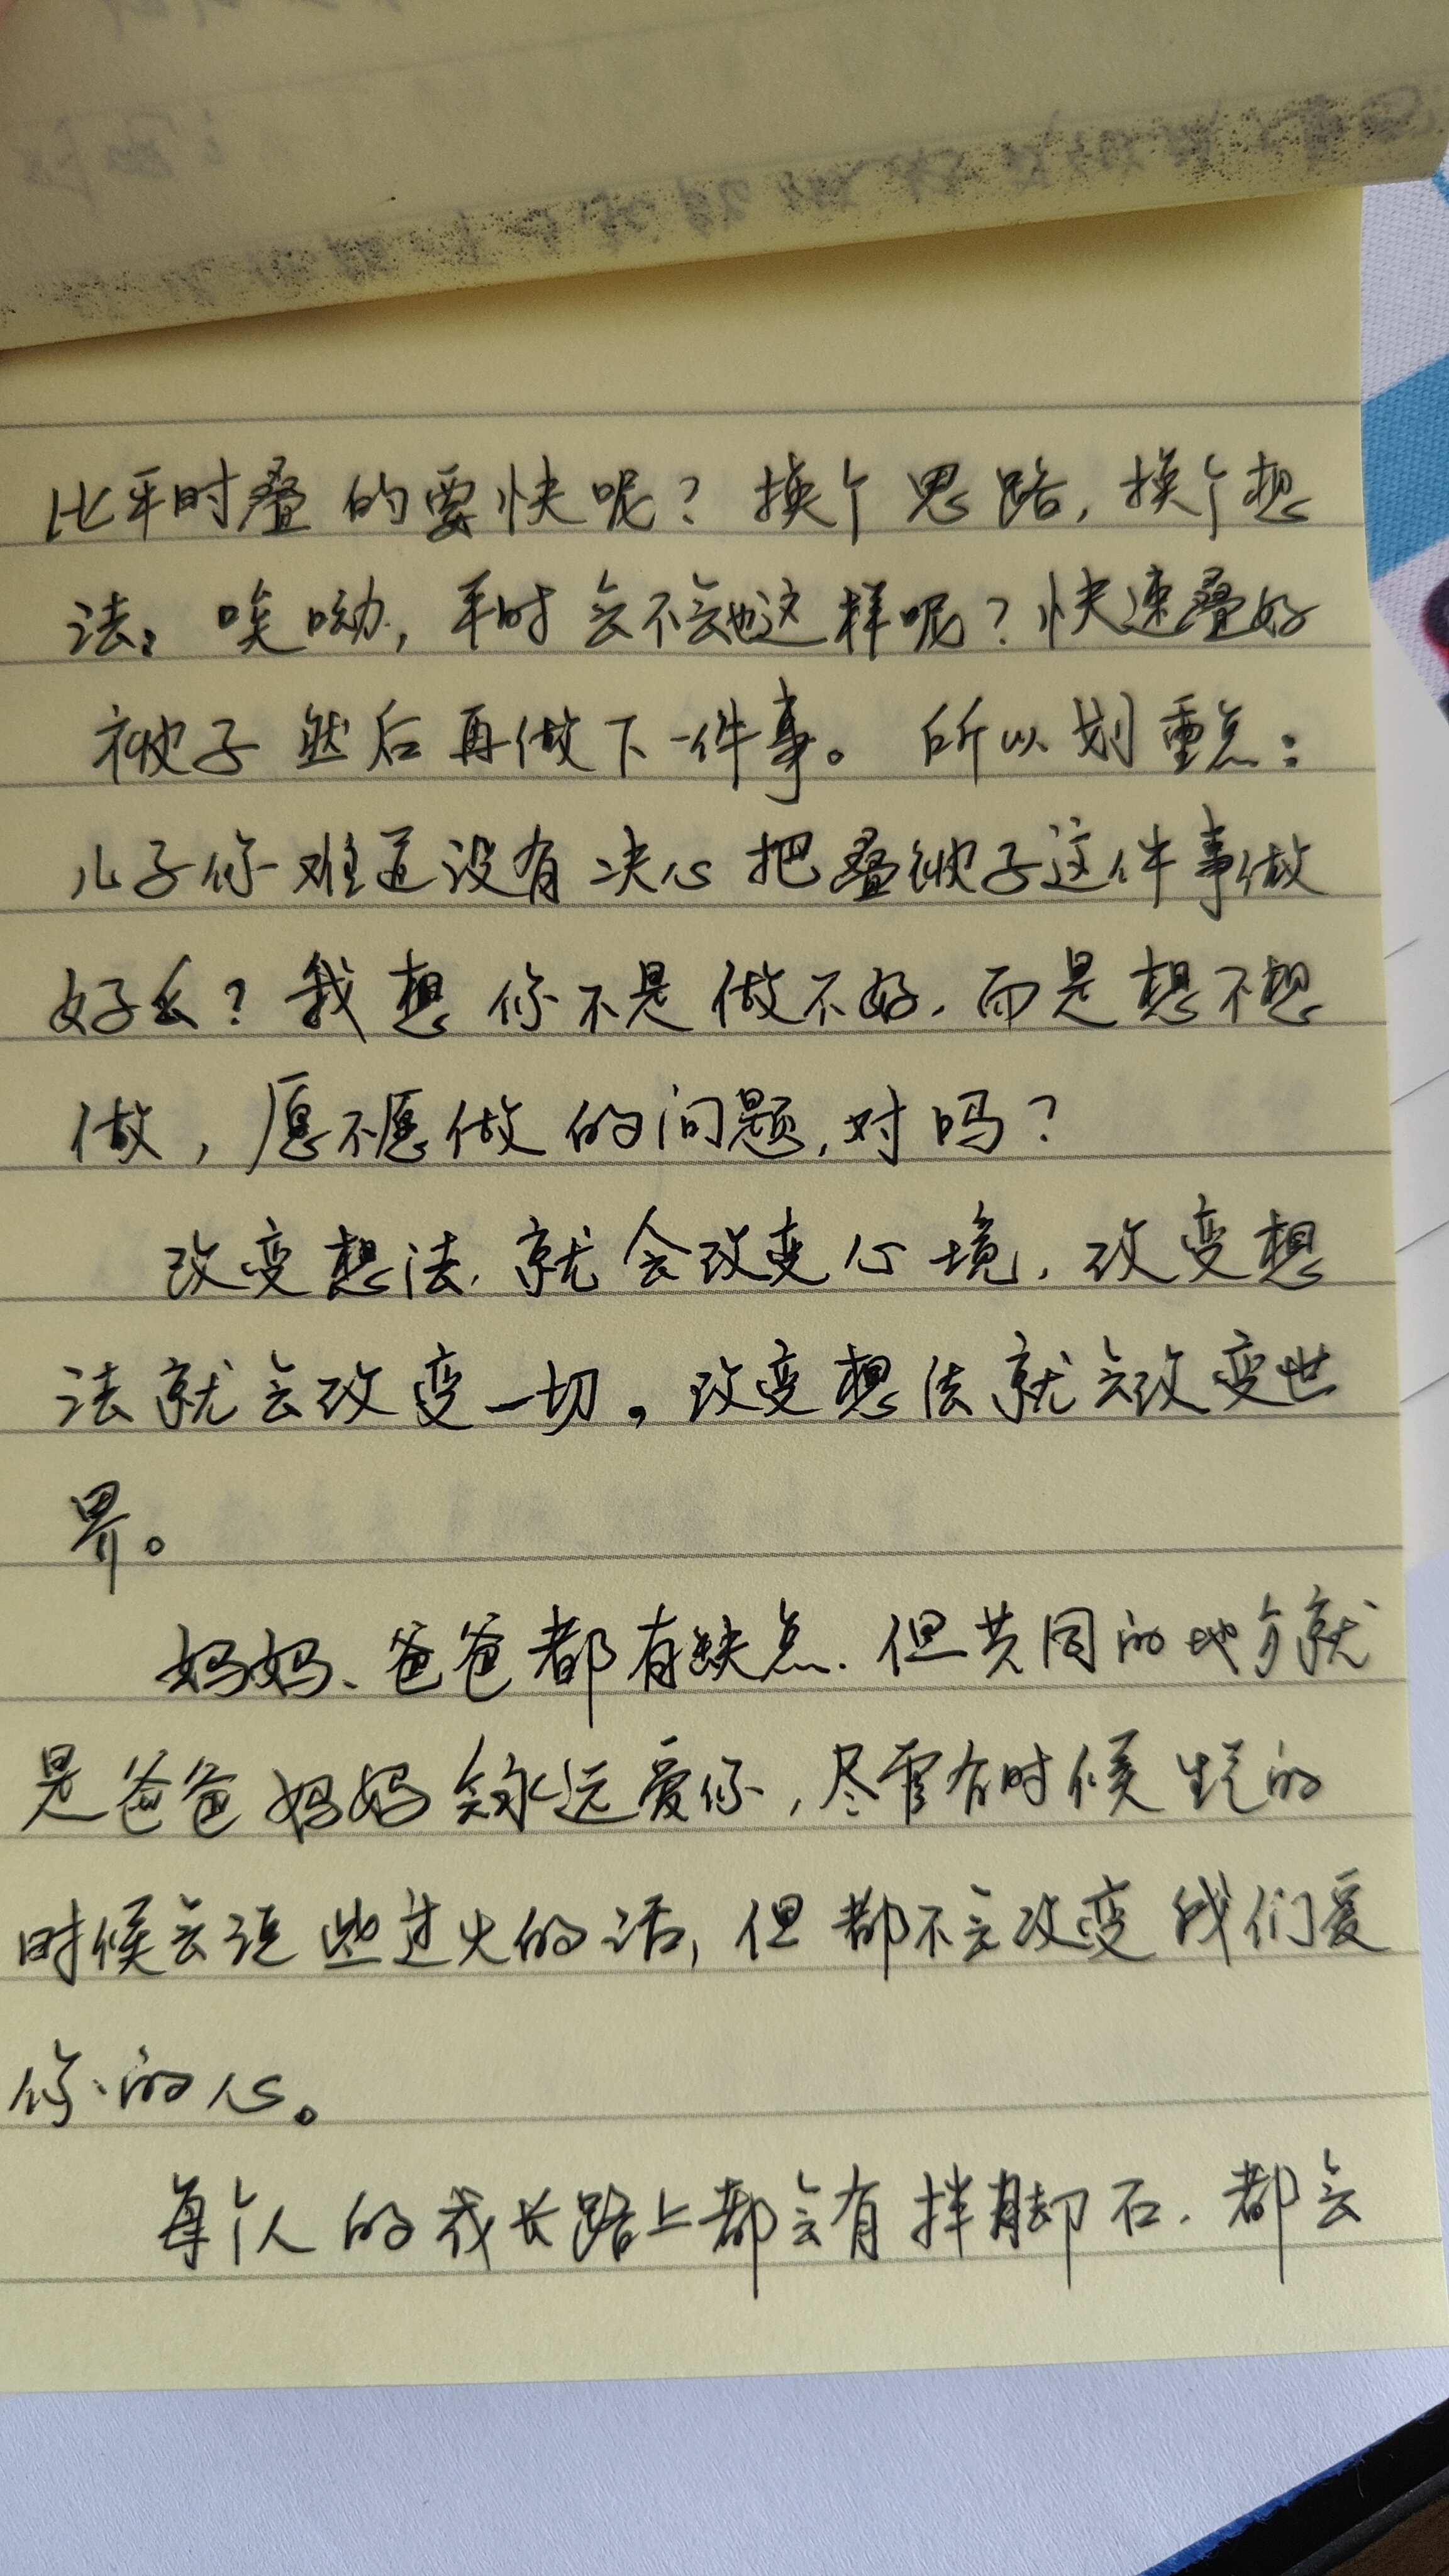 比平时叠的要快呢？换个思路，换个想
法：唉呦，平时会不会也这样呢？快速叠好
被子然后再做下一件事。所以划重点：
儿子你难道没有决心把叠被子这件事做
好么？我想你不是做不好，而是想不想
做，愿不愿做的问题，对吗？
改变想法，就会改变心境，改变想
法就会改变一切。改变想法就会改变世
界。
妈妈、爸爸都有缺点，但共同的地方就
是爸爸妈妈会永远爱你，尽管有时候生气的
时候会说些过火的话，但都不会改变我们爱
你的心。
每个人的成长路上都会有拌脚石，都会